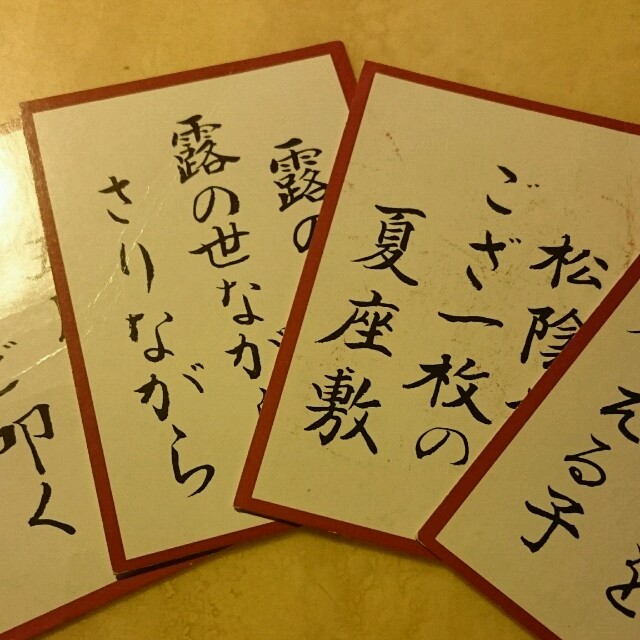 松陰
ござ一枚の
夏座敷
露の
露の世なが
さりながら
そる子
を
ど叩く